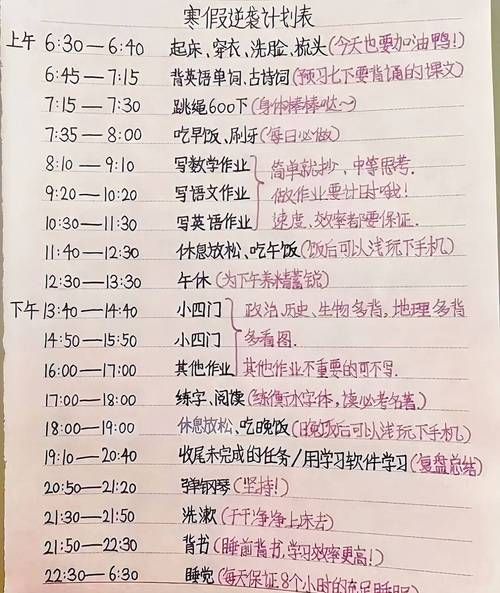 寒假逆袭计划表
上午 6:30—6:40 起床、穿衣、洗脸、梳头(今天也要加油鸭!)
6:45—7:15 背英语单词、古诗词(预习七下要背诵的课文)
7:15—7:30 跳绳600下(身体棒棒哒~)
7:35—8:00 吃早饭、刷牙(每日必做)
8:10—9:10 写数学作业 简单就抄、中等思考.
9:20—10:20 写语文作业 做作业要计时哦!
10:30—11:30 写英语作业 速度、效率都要保证.
11:40—12:30 休息放松、吃午饭(饭后可以浅玩下手机)
12:30—13:30 午休(为下午养精蓄锐)
下午 13:40—14:40 小四门 政治、历史、生物多背,地理多背
14:50—15:50 小四门 多看图.
16:00—17:00 其他作业 其他作业不重要的可不写.
17:00—18:00 练字、阅读(练衡水字体,读必考名著)
18:00—19:00 休息放松、吃晚饭(晚饭后可以浅玩下手机)
19:10—20:40 收尾未完成的任务/用学习软件学习(复盘总结)
20:50—21:20 弹钢琴(坚持!)
21:30—21:50 洗漱(干干净净上床去)
21:50—22:30 背书(睡前背书,学习效率更高!)
22:30—6:30 睡觉(每天保证8个小时的充足睡眠)